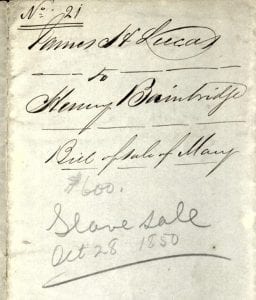 No. 21
James H Lucas
to
Henry Bainbridge
Bill of sale of Mary
$600.
Slave sale
Oct 28 1850